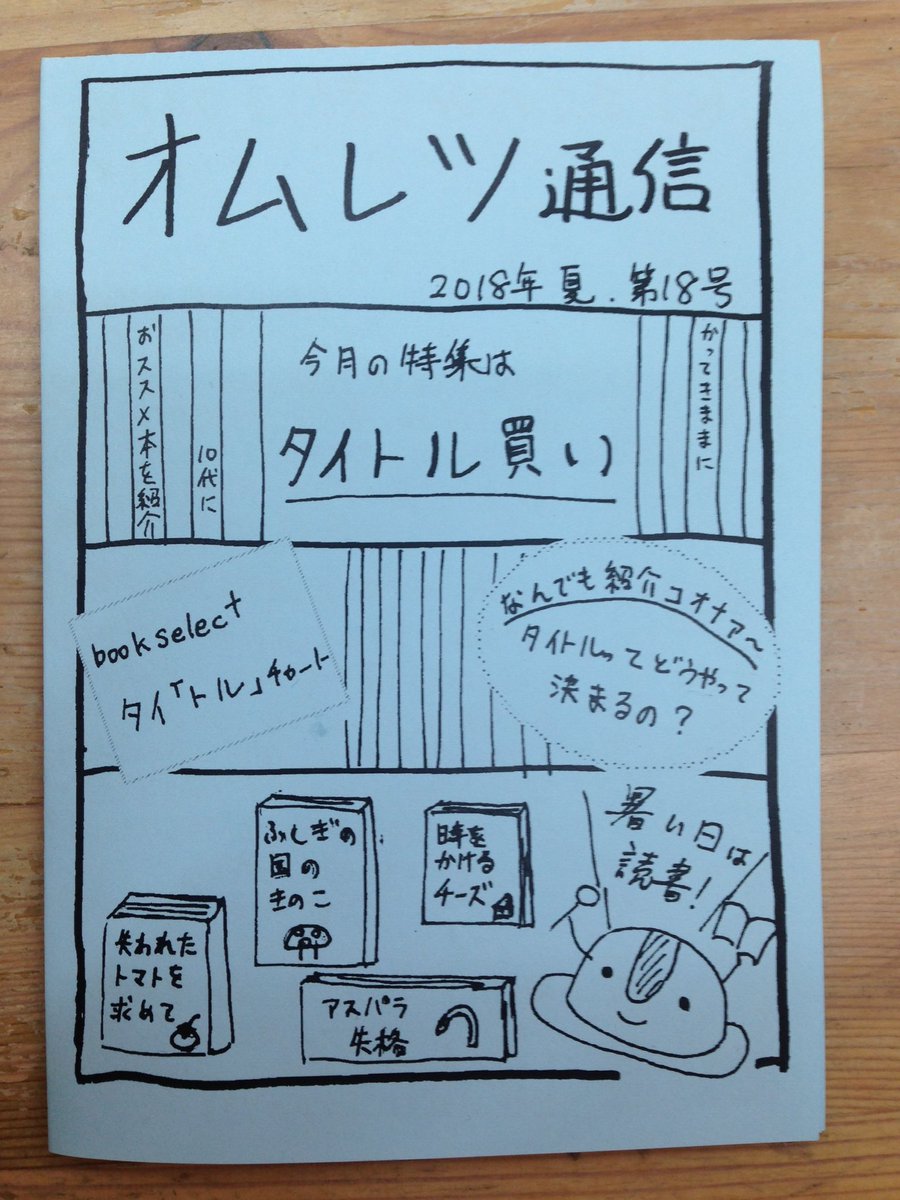 オムレツ通信
2018年 夏.第18号
かってきままに
今月の特集は
タイトル買い
10代に
おススメ本を紹介
book select
タイ「トル」チャート
なんでも紹介コオナア〜
タイトルってどうやって
決まるの?
暑い日は
読書!
失われた
トマトを
求めて
ふしぎの
国の
きのこ
時を
かける
チーズ
アスパラ
失格